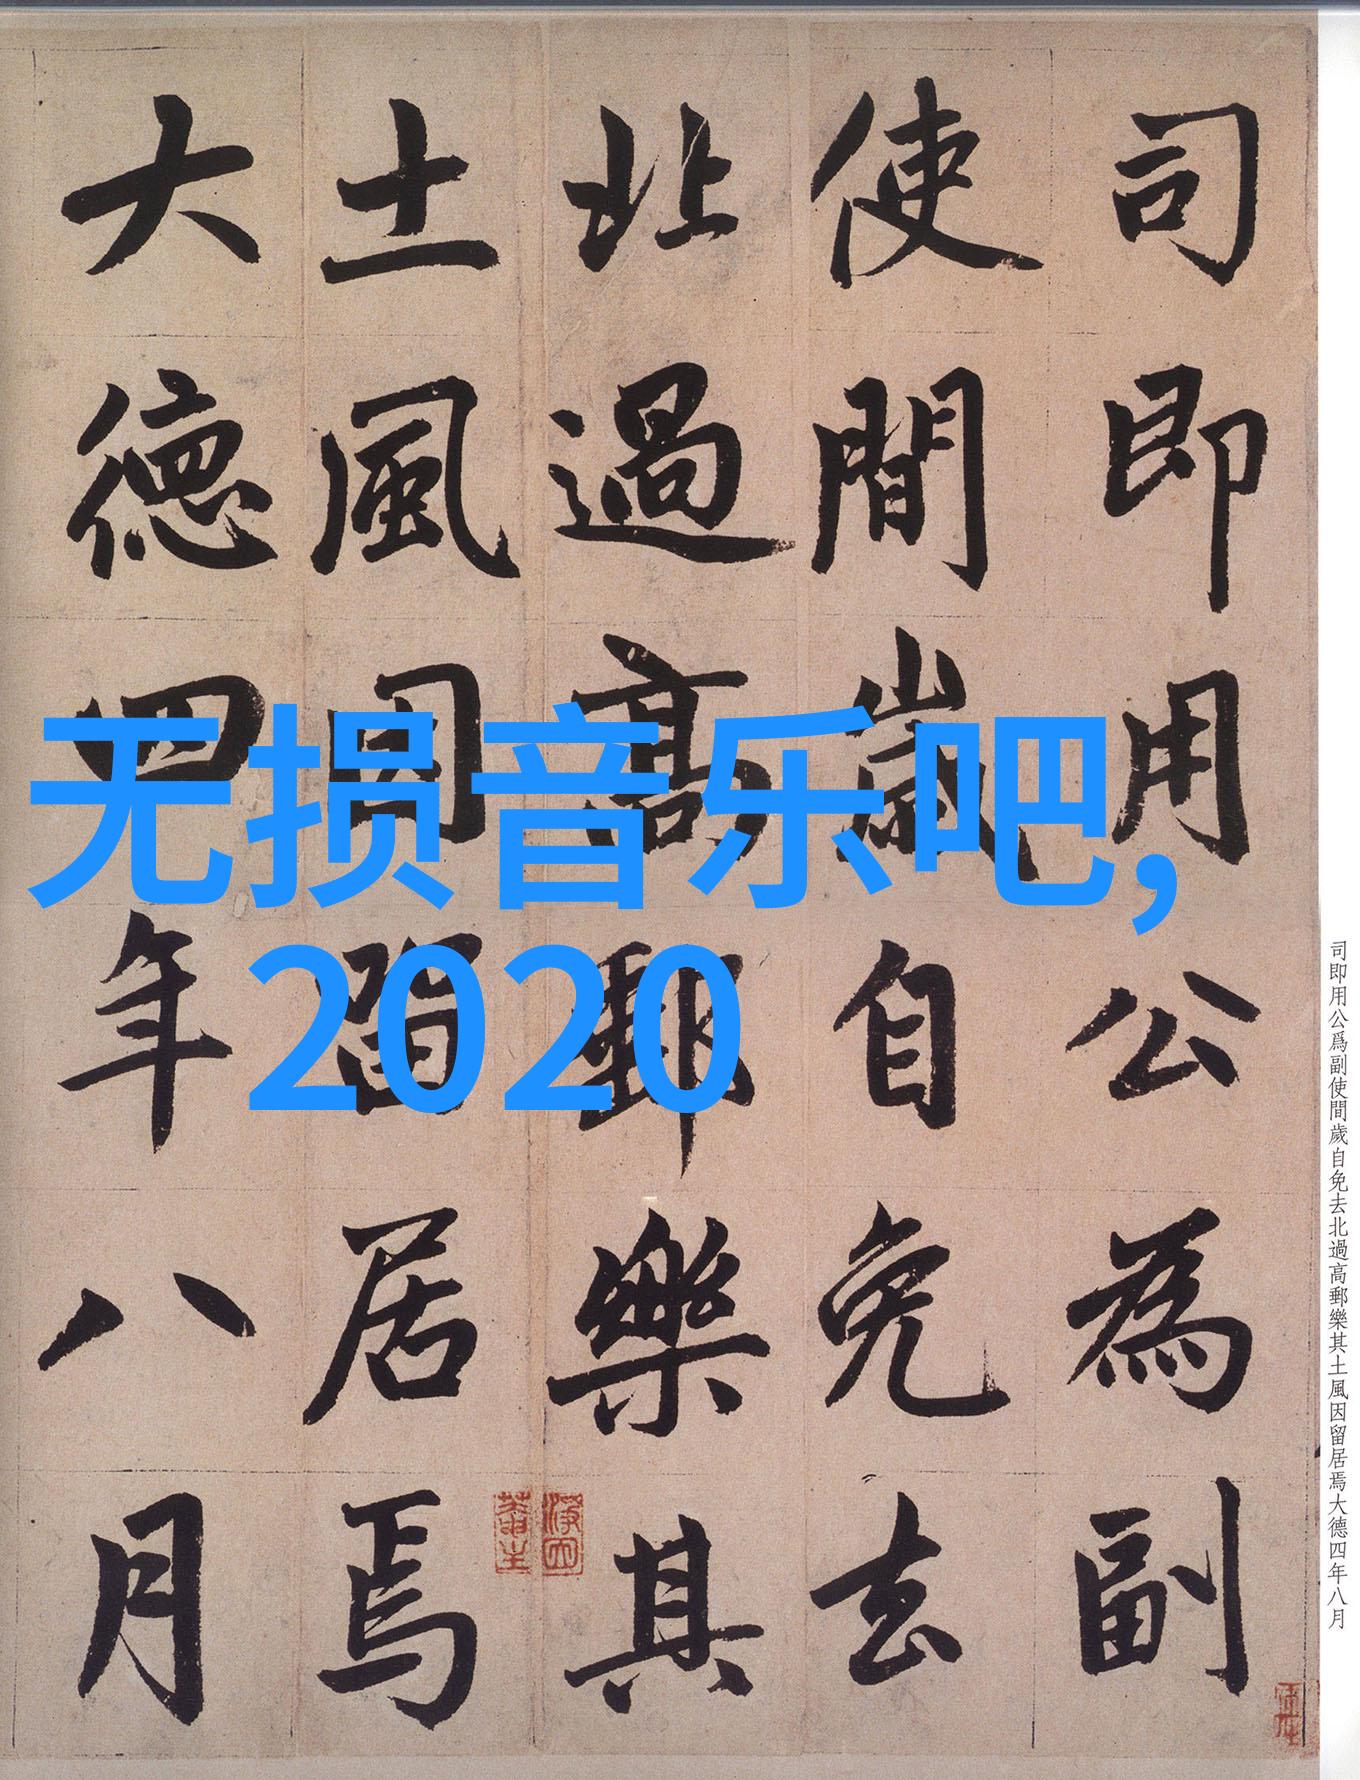 司即用公為副
使間歲自免去
北過高郵樂其
土風因留居焉
大德四年八月
无损音乐吧,
2020
司即用公爲副使間歲自免去北過高郵樂其土風因留居焉大德四年八月